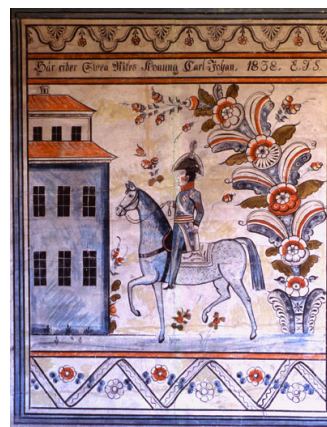 Här rider Svea Rikes Konung Carl Johan. 1838. E.J.S.